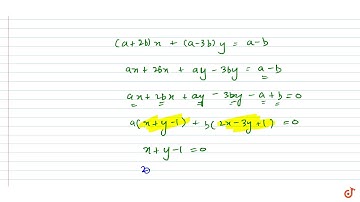 (a+2b)x + (a-3b)y = a-b
ax+2bx + ay-3by = a-b
ax+2bx + ay - 3by - a + b = 0
a(x+y-1) + b(2x-3y+1) = 0
x+y-1 = 0